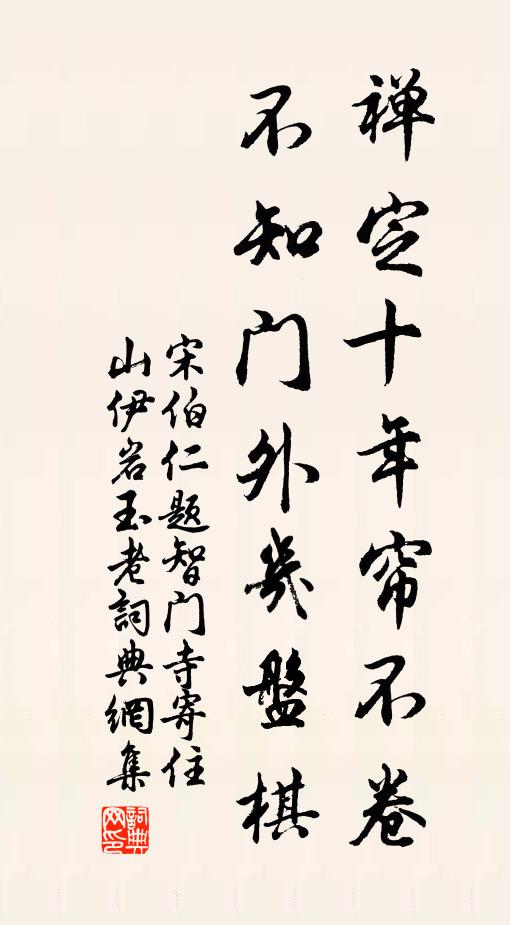 禅定十年帘不卷
不知门外几盤棋
宋伯仁题智门寺寄住
山伊岩玉老詞典網集
詞典网印